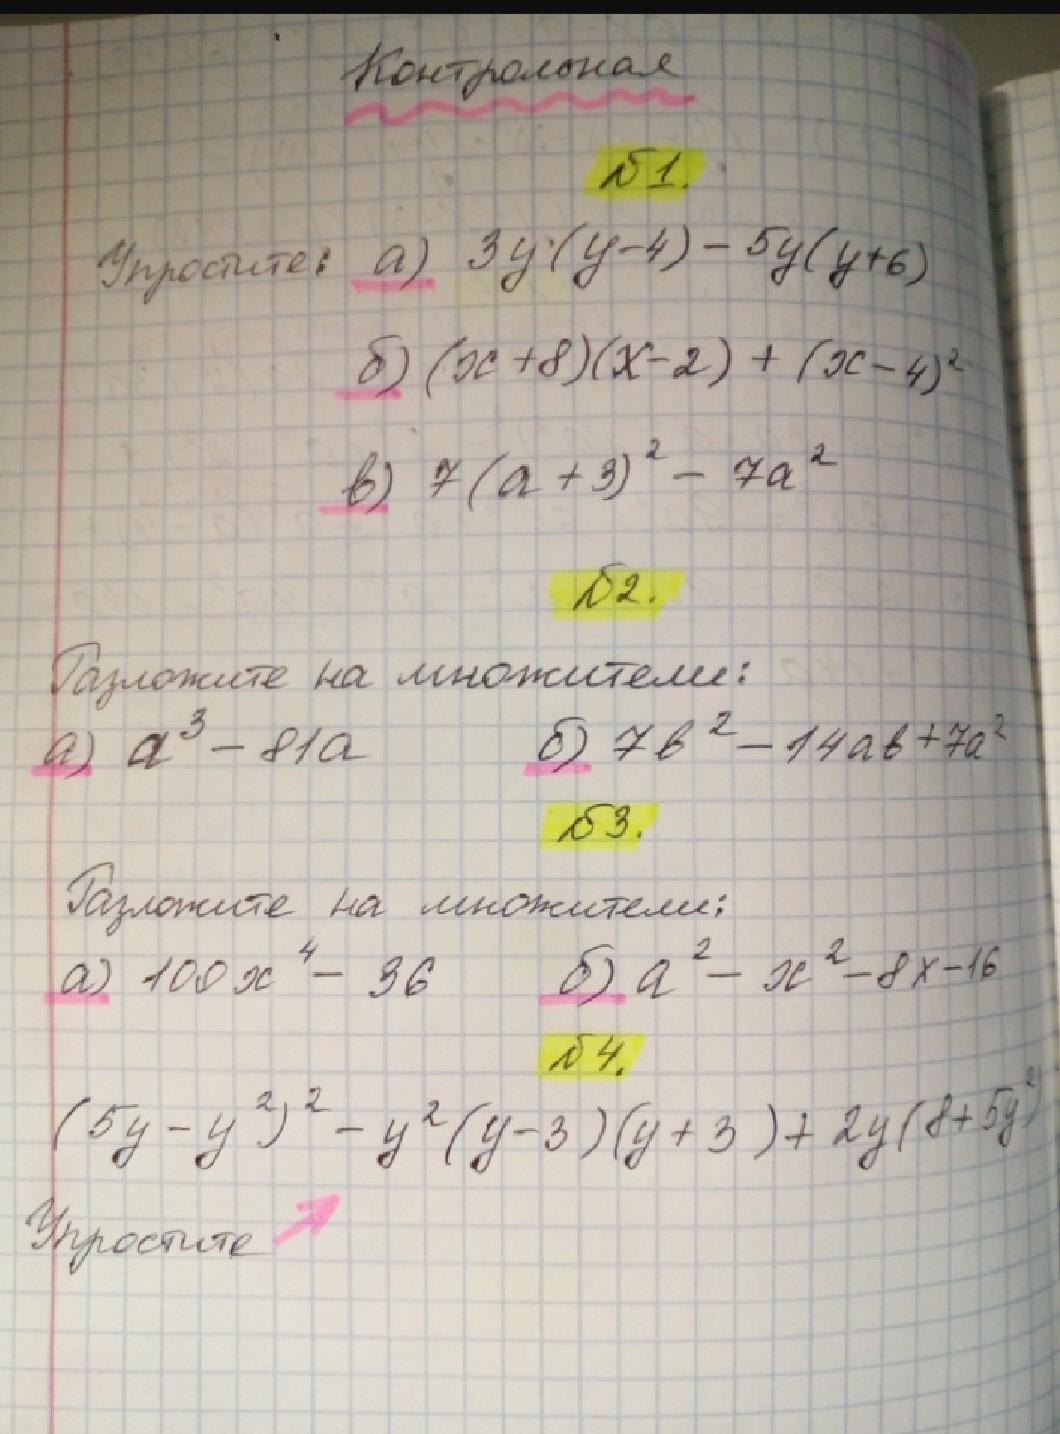 Контрольная
№1.
Упростите: а) 3y·(y-4) - 5y(y+6)
б) (x+8)(x-2) + (x-4)²
в) 7(a+3)² - 7a²
№2.
Разложите на множители:
а) a³ - 81a б) 7b² - 14ab + 7a²
№3.
Разложите на множители:
а) 100x⁴ - 36 б) a² - x² - 8x - 16
№4.
(5y - y²)² - y²(y-3)(y+3) + 2y(8+5y²)
Упростите